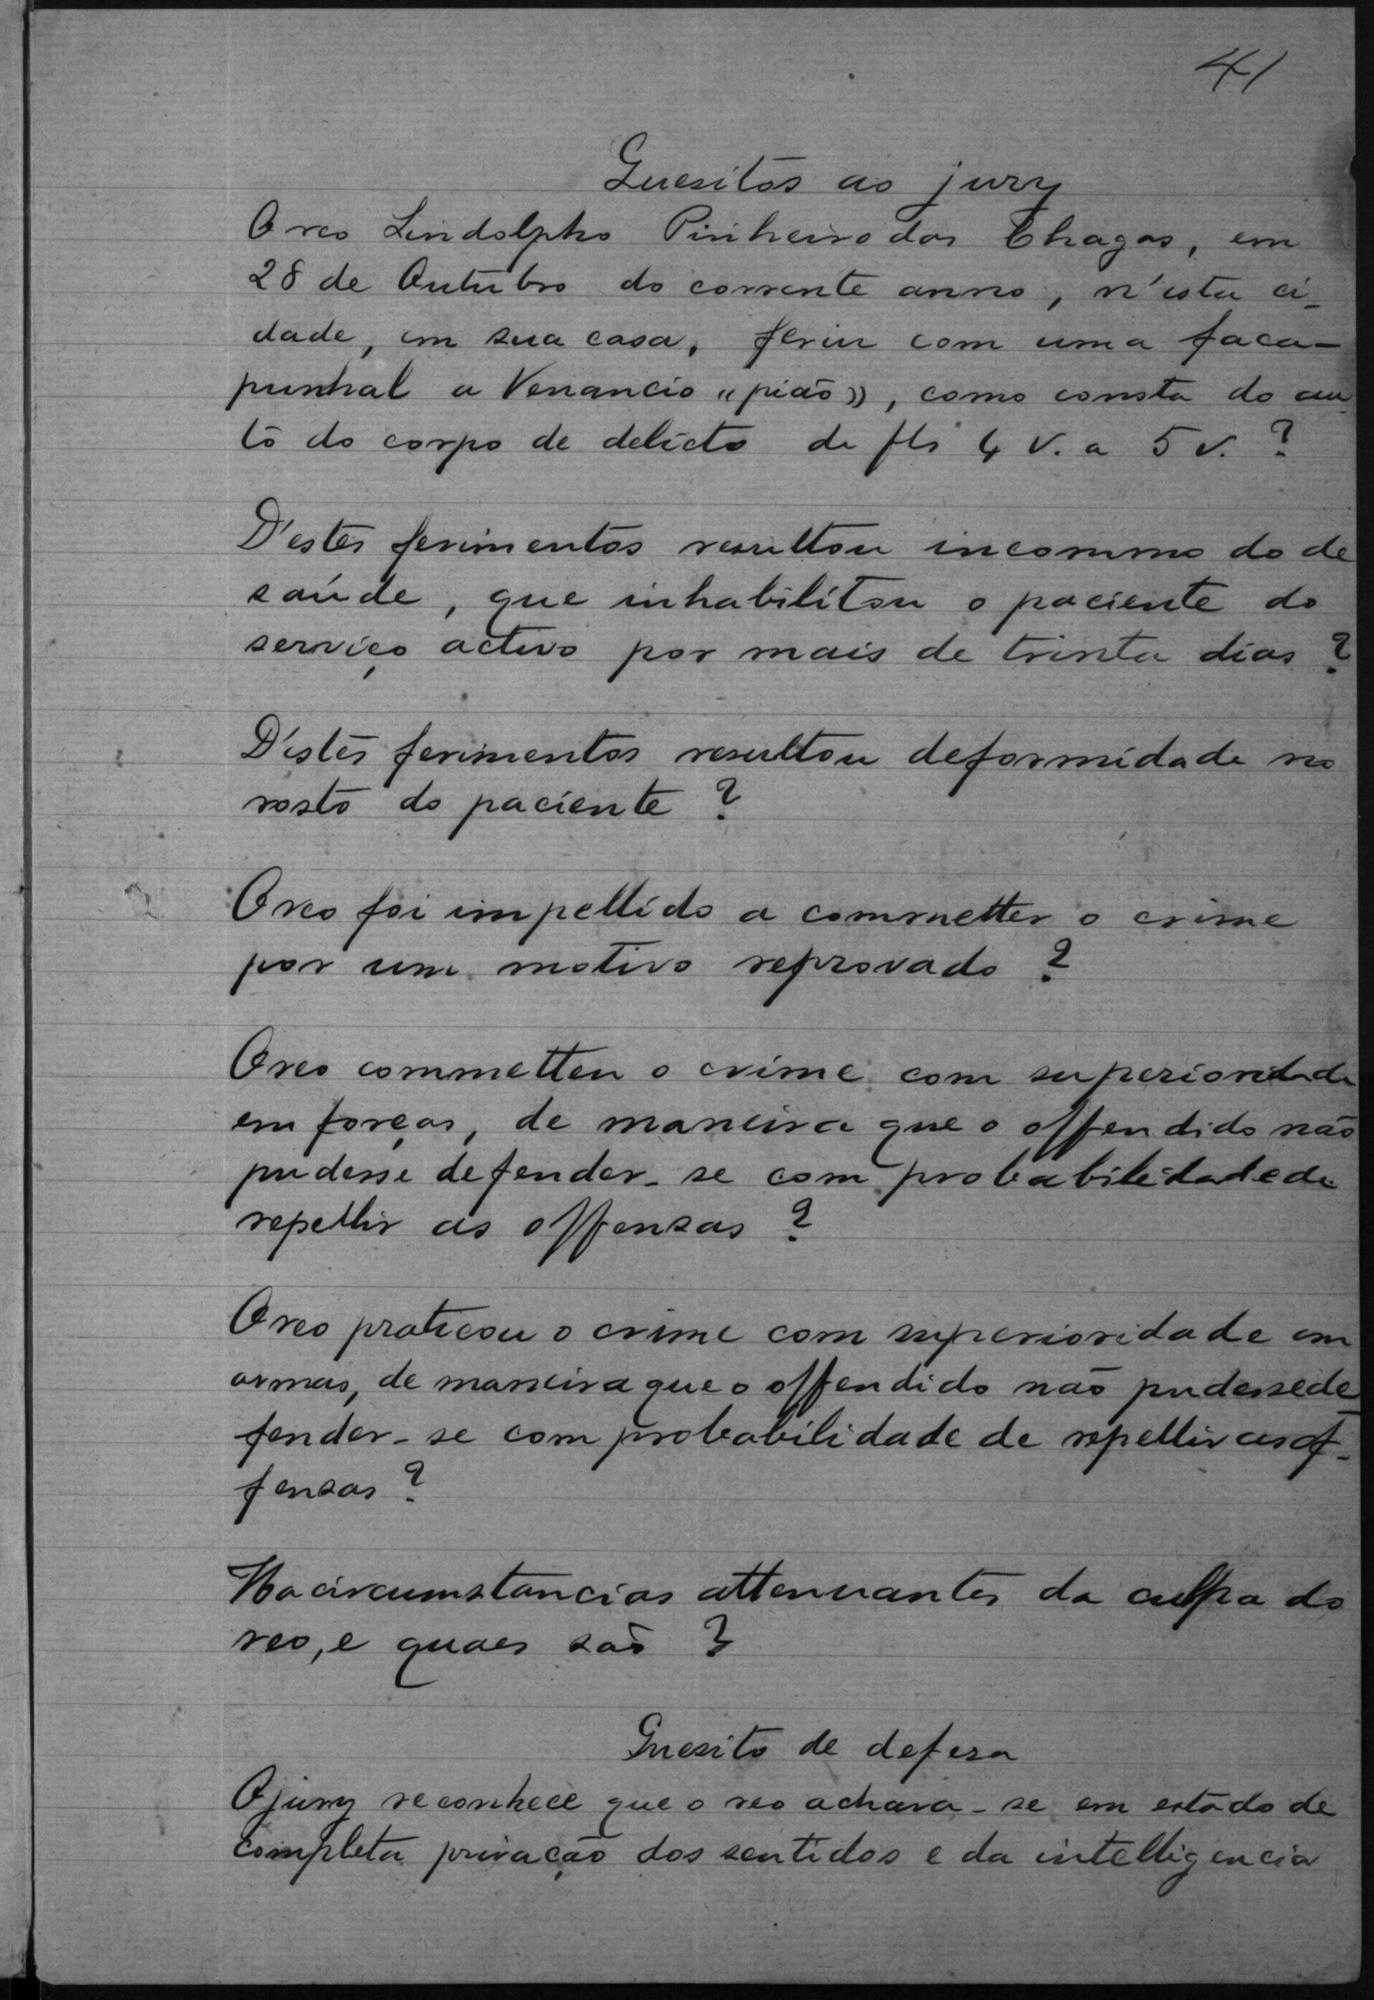 41
Quesitos ao jury
O reo Lindolpho Pinheiro das Chagas, em
28 de Outubro do corrente anno, n'esta ci-
dade, em sua casa, feriu com uma faca-
punhal a Venancio «pião», como consta do au-
to do corpo de delicto de fls 4 v. a 5 v. ?
D'estes ferimentos resultou incommodo de
saúde, que inhabilitou o paciente do
serviço activo por mais de trinta dias ?
D'estes ferimentos resultou deformidade no
rosto do paciente ?
O reo foi impellido a commetter o crime
por um motivo reprovado ?
O reo commetteu o crime com superioridade
em forças, de maneira que o offendido não
pudesse defender-se com probabilidade de
repellir as offensas ?
O reo praticou o crime com superioridade em
armas, de maneira que o offendido não pudesse de
fender-se com probabilidade de repellir as of-
fensas ?
Ha circumstancias attenuantes da culpa do
reo, e quaes são ?
Quesito de defesa
O jury reconhece que o reo achava-se em estado de
completa privação dos sentidos e da intelligencia